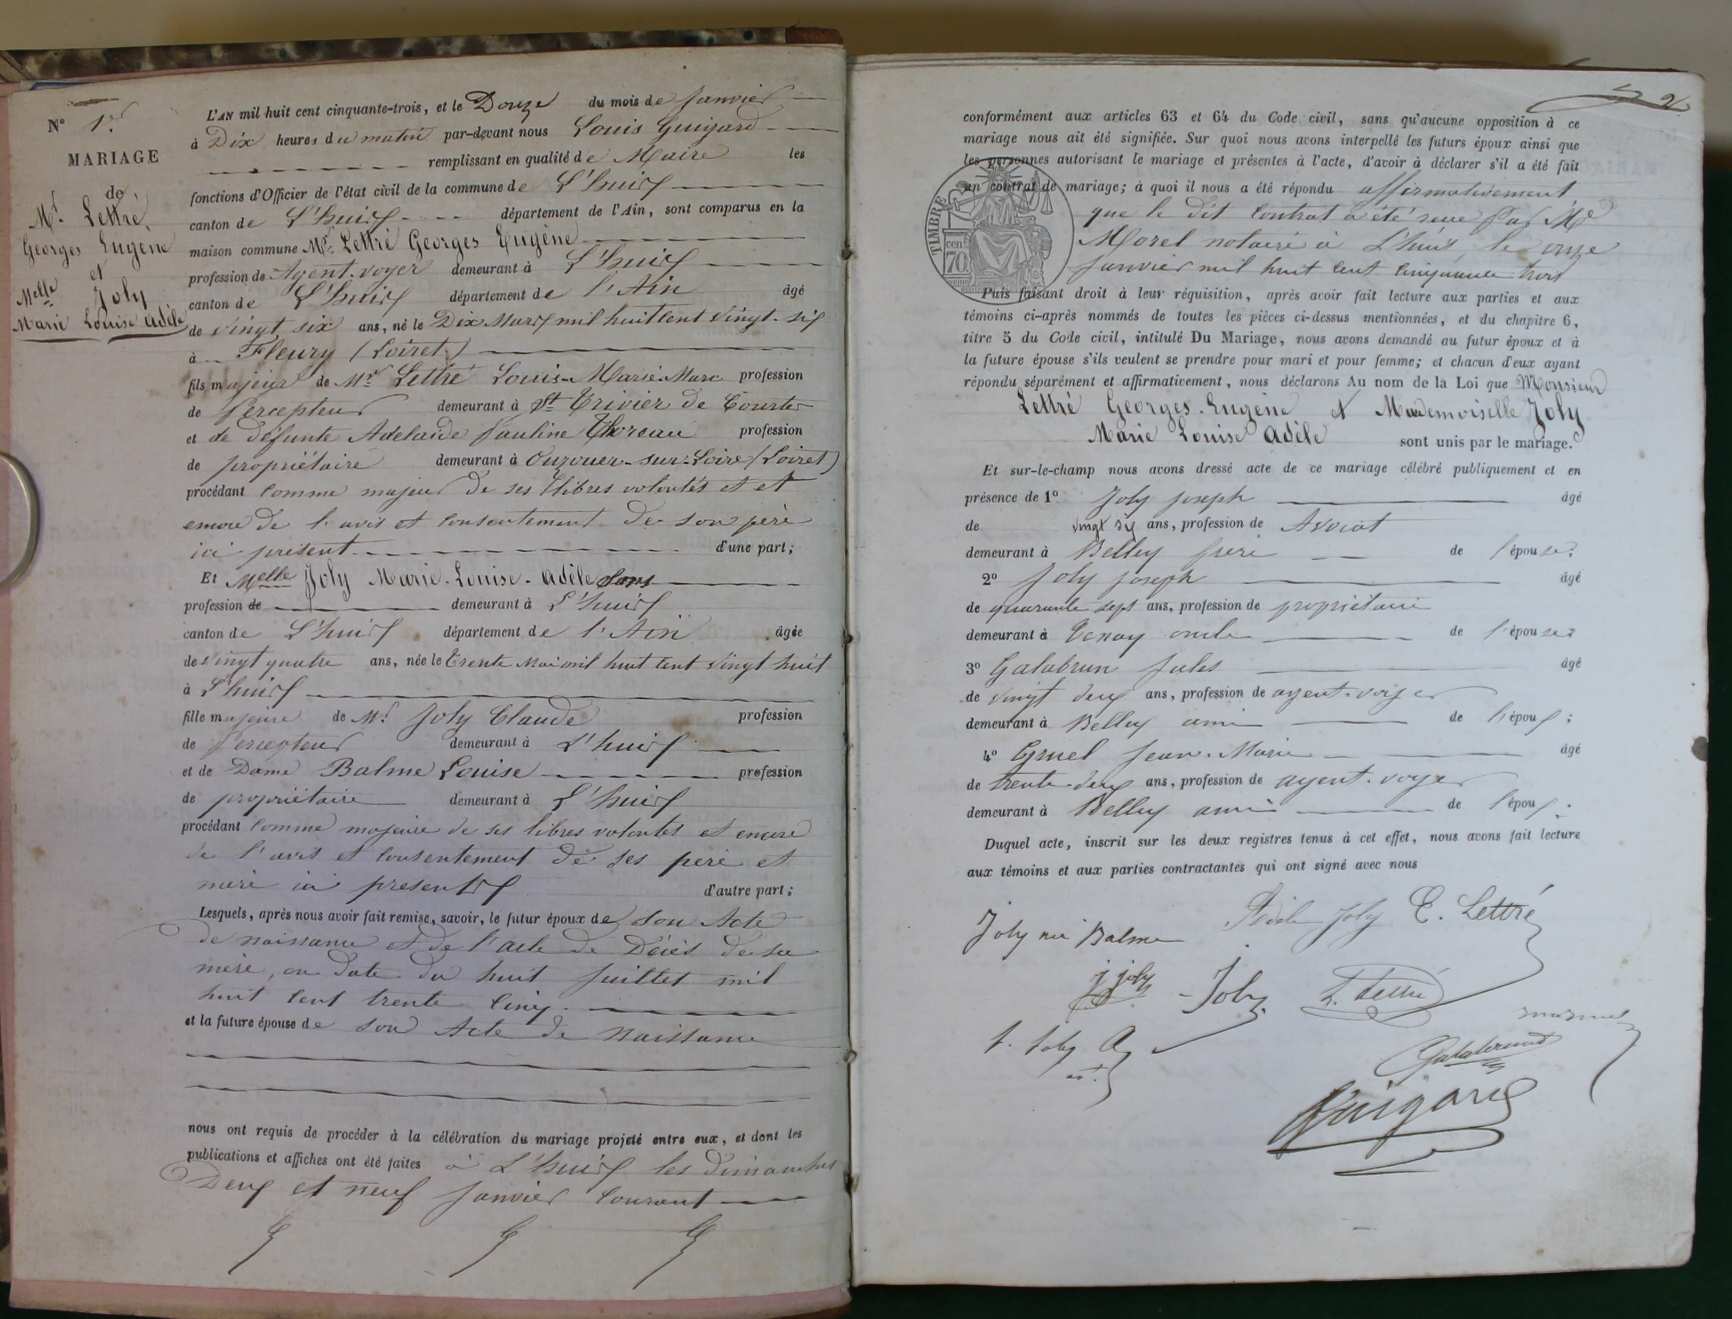 N° 1er
MARIAGE
de
Mr. Lettré
Georges Eugène
et
Melle Joly
Marie Louise Adèle
L'AN mil huit cent cinquante-trois, et le Douze du mois de Janvier
à Dix heures du matin par-devant nous Louis Guigard
remplissant en qualité de Maire les
fonctions d'Officier de l'état civil de la commune de L'huis
canton de L'huis département de l'Ain, sont comparus en la
maison commune Mr. Lettré Georges Eugène
profession de Agent-voyer demeurant à L'huis
canton de L'huis département de l'Ain âgé
de vingt six ans, né le Dix Mars mil huit cent vingt-six
à Fleury (Loiret)
fils majeur de Mr Lettré Louis-Marie-Marc profession
de Percepteur demeurant à St Trivier de Courtes
et de défunte Adelaïde Pauline Thoreau profession
de propriétaire demeurant à Ouzouer-sur-Loire (Loiret)
procédant comme majeur de ses libres volontés et et
encore de l'avis et consentement de son père
ici présent d'une part;
Et Melle Joly Marie-Louise-Adèle sans
profession de demeurant à L'huis
canton de L'huis département de l'Ain âgée
de vingt quatre ans, née le trente Mai mil huit cent vingt huit
à L'huis
fille majeure de Mr. Joly Claude profession
de Percepteur demeurant à L'huis
et de Dame Balme Louise profession
de propriétaire demeurant à L'huis
procédant comme majeure de ses libres volontés et encore
de l'avis et consentement de ses père et
mère ici présents d'autre part;
Lesquels, après nous avoir fait remise, savoir, le futur époux de son Acte
de naissance et de l'acte de Décès de sa
mère, en date du huit Juillet mil
huit cent trente cinq.
et la future épouse de son Acte de naissance
nous ont requis de procéder à la célébration du mariage projeté entre eux, et dont les
publications et affiches ont été faites à L'huis les dimanches
Deux et neuf Janvier courant
2
conformément aux articles 63 et 64 du Code civil, sans qu'aucune opposition à ce
mariage nous ait été signifiée. Sur quoi nous avons interpellé les futurs époux ainsi que
les personnes autorisant le mariage et présentes à l'acte, d'avoir à déclarer s'il a été fait
un contrat de mariage; à quoi il nous a été répondu affirmativement
que le dit contrat a été reçu par Me
Morel notaire à L'huis le onze
Janvier mil huit cent cinquante trois
TIMBRE
cen.
70
Puis faisant droit à leur réquisition, après avoir fait lecture aux parties et aux
témoins ci-après nommés de toutes les pièces ci-dessus mentionnées, et du chapitre 6,
titre 5 du Code civil, intitulé Du Mariage, nous avons demandé au futur époux et à
la future épouse s'ils veulent se prendre pour mari et pour femme; et chacun d'eux ayant
répondu séparément et affirmativement, nous déclarons Au nom de la Loi que Monsieur
Lettré Georges-Eugène et Mademoiselle Joly
Marie Louise Adèle sont unis par le mariage.
Et sur-le-champ nous avons dressé acte de ce mariage célébré publiquement et en
présence de 1° Joly Joseph âgé
de vingt six ans, profession de Avocat
demeurant à Belley frère de l'épouse.
2° Joly Joseph âgé
de quarante sept ans, profession de propriétaire
demeurant à Tenay oncle de l'épouse
3° Galabrun Jules âgé
de vingt deux ans, profession de agent-voyer
demeurant à Belley ami de l'époux;
4° Gruel Jean-Marie âgé
de trente-deux ans, profession de agent-voyer
demeurant à Belley ami de l'époux.
Duquel acte, inscrit sur les deux registres tenus à cet effet, nous avons fait lecture
aux témoins et aux parties contractantes qui ont signé avec nous
Joly née Balme Adèle Joly E. Lettré
J Joly Joly L. Lettré
J. Joly
Galabrun
Guigard